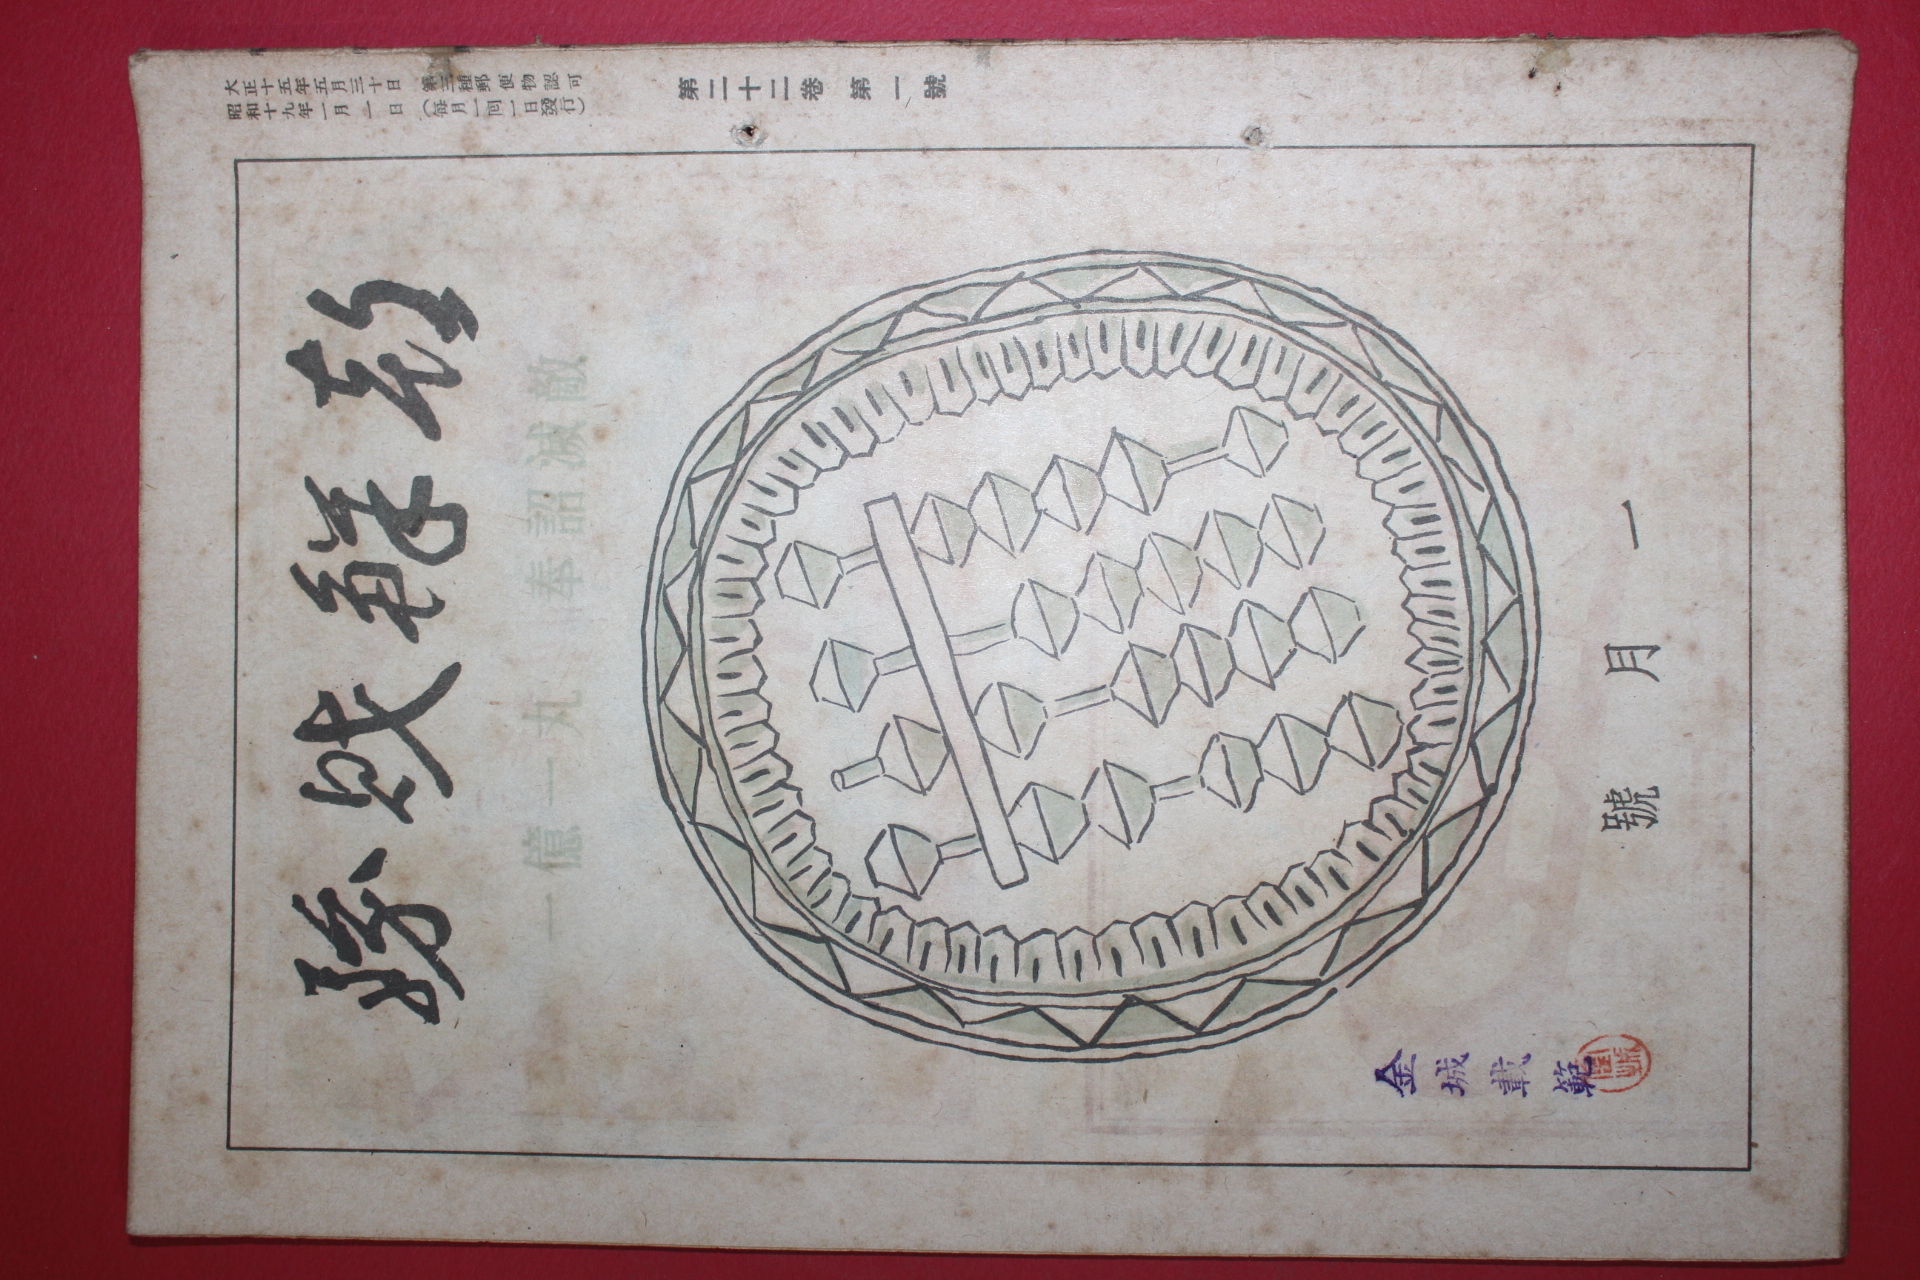 朝鮮財務
一億一丸 奉詔滅敵
一月號
大正十五年五月三十日 第三種郵便物認可
昭和十九年一月一日(每月一回一日發行)
第二十二卷 第一號
金城載範